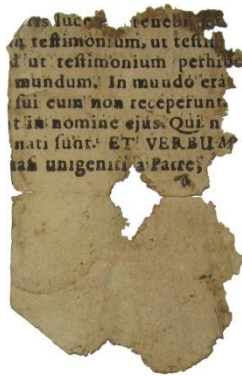 luce tenebr
n teſtimonium, ut teſti
d ut teſtimonium perhibe
mundum. In mundo era
ſui eum non receperunt
t in nomine ejus. Qui n
nati ſunt. ET VERBUM
unigeniti a Patre,